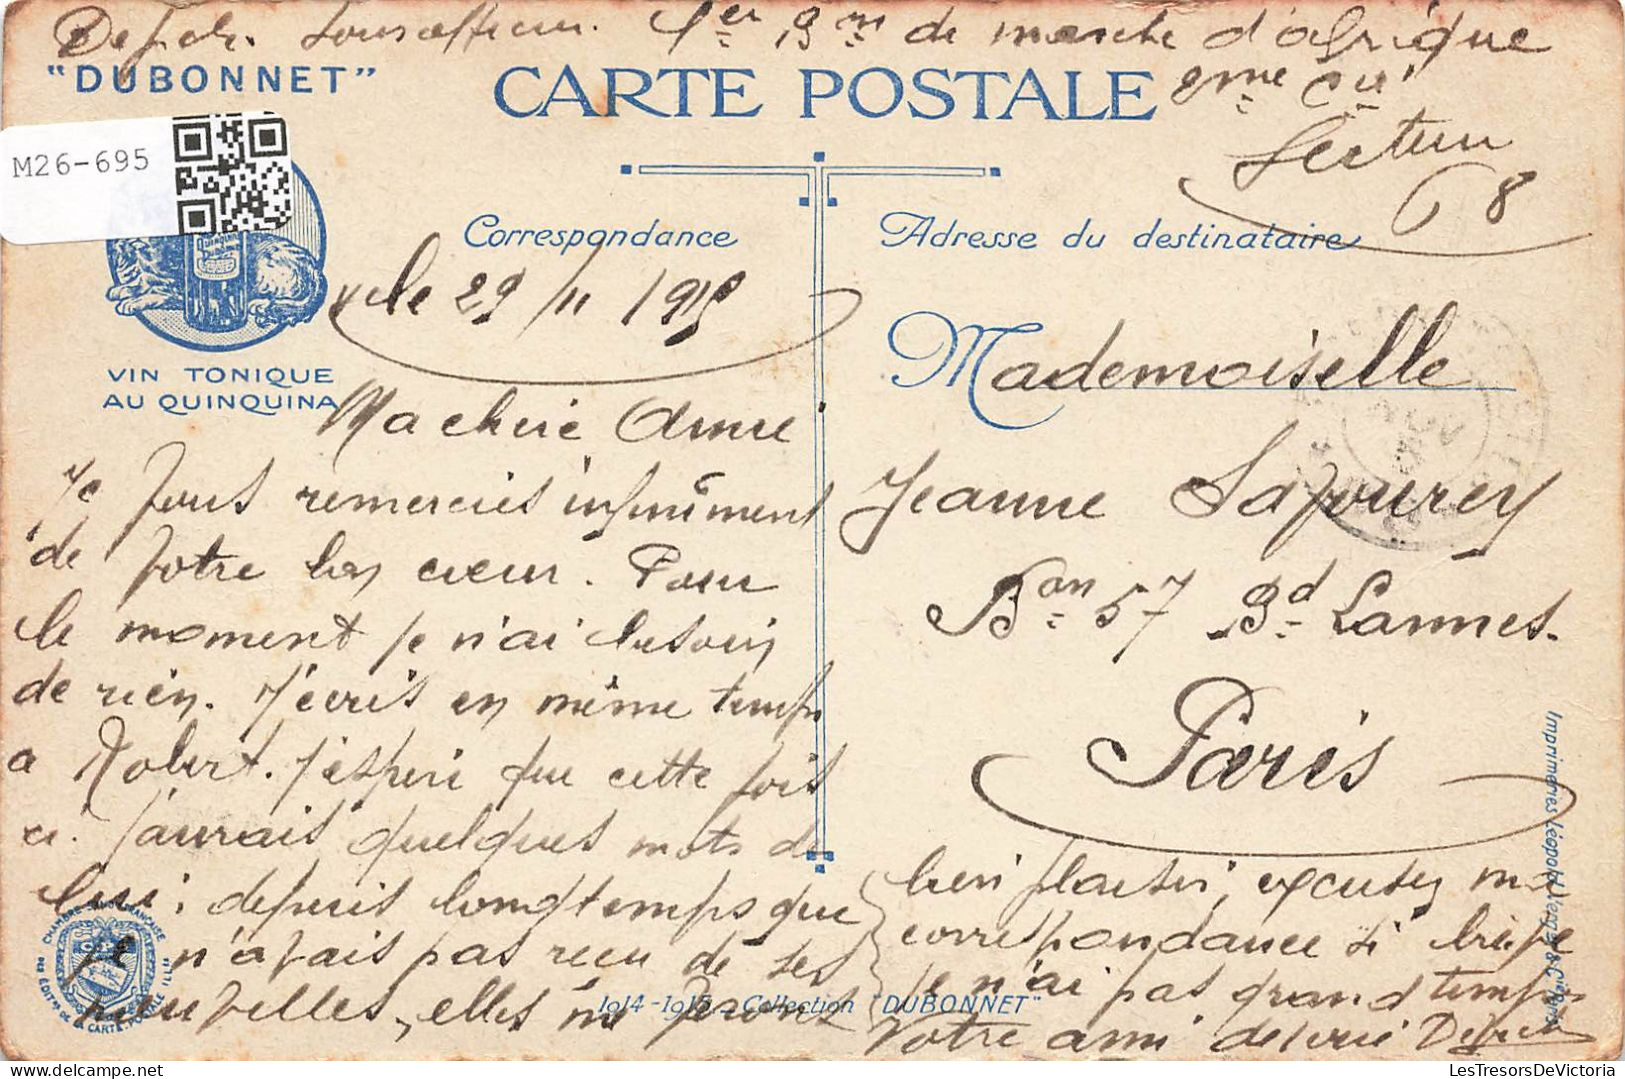 1er Bon de marche d'afrique
"DUBONNET"
CARTE POSTALE
9me Cie
Secteur
68
M26-695
Correspondance
Adresse du destinataire
le 29/11 1915
VIN TONIQUE
AU QUINQUINA
Ma chère Amie
Je vous remercies infiniment
de votre bon cœur. Pour
le moment je n'ai besoin
de rien. J'écris en même temps
a Robert. j'espère que cette fois
ci. j'aurais quelques mots de
lui; depuis longtemps que
je n'avais pas recu de ses
nouvelles, elles me feront
bien plaisir, excusez ma
correspondance si brève
je n'ai pas grand temps
Votre ami
Mademoiselle
Jeanne
Bon 57 Bd Lannes.
Paris
CHAMBRE SYNDICALE FRANÇAISE
DES ÉDITRS DE LA CARTE POSTALE ILLEE
1914-1915 _ Collection "DUBONNET"
Imprimeries Léopold Verger & Cie Paris
LesTresorsDeVictoria